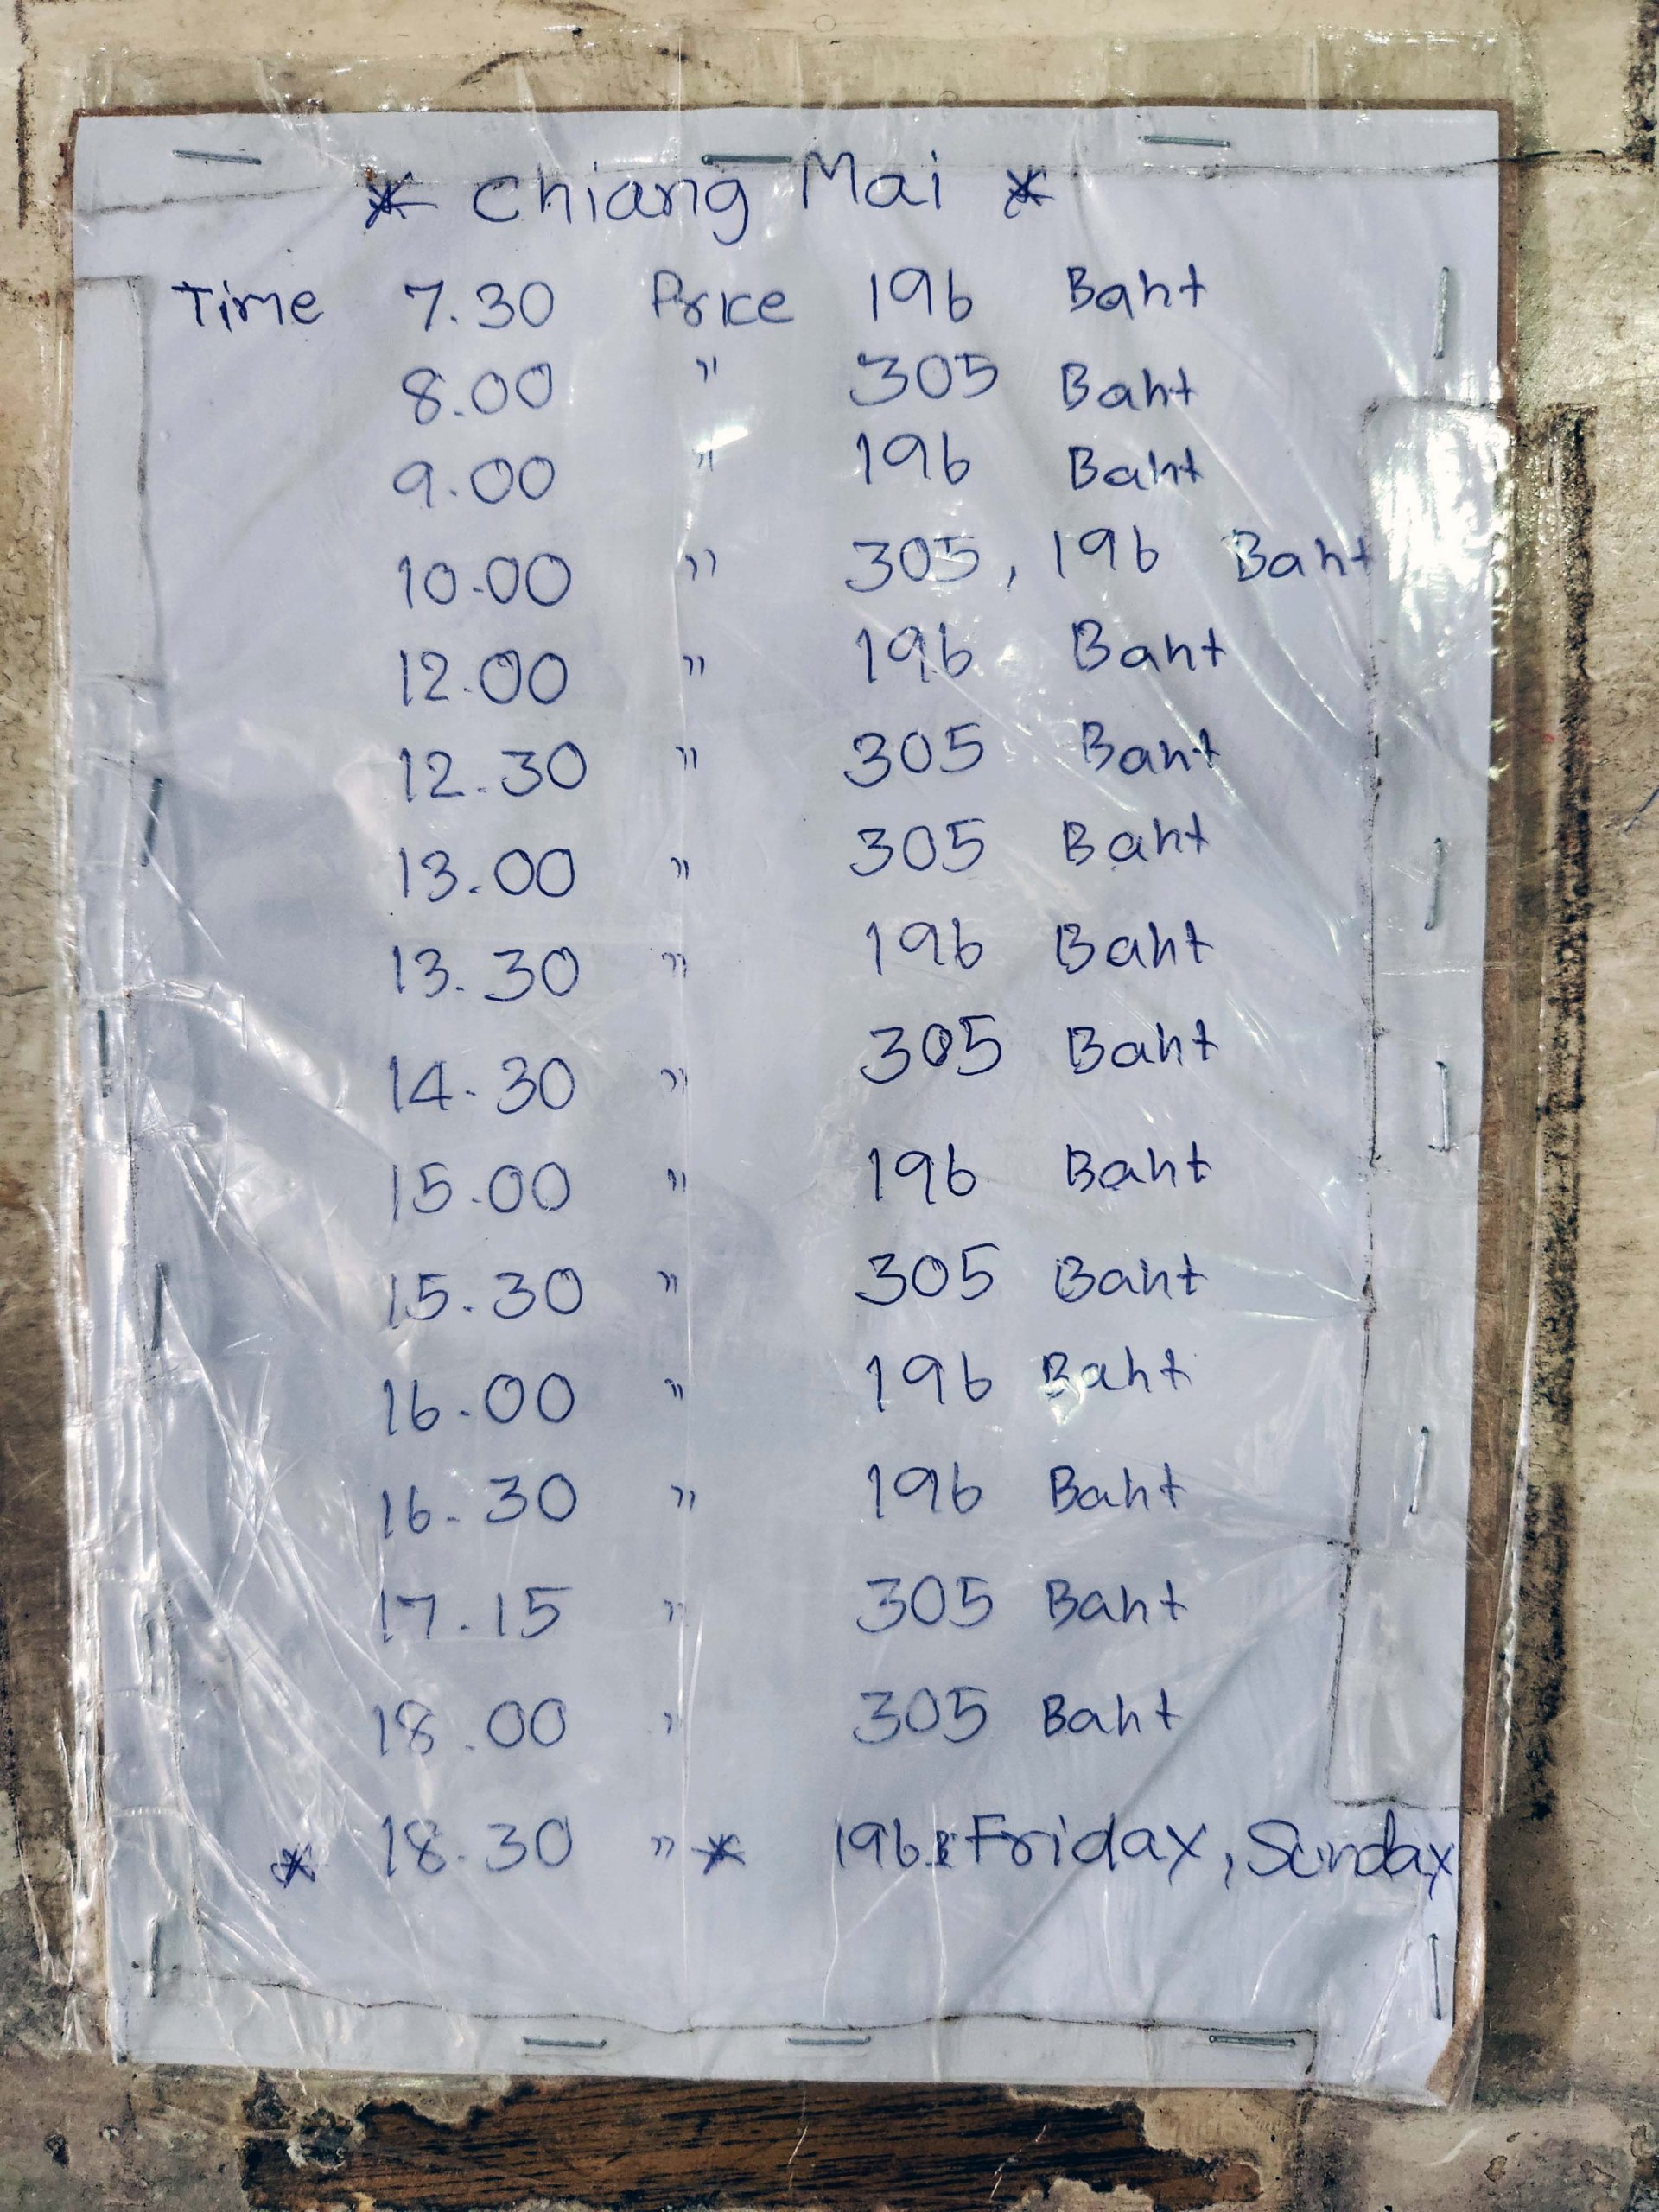 * Chiang Mai *
Time 7.30 Price 196 Baht
8.00 " 305 Baht
9.00 " 196 Baht
10.00 " 305, 196 Baht
12.00 " 196 Baht
12.30 " 305 Baht
13.00 " 305 Baht
13.30 " 196 Baht
14.30 " 305 Baht
15.00 " 196 Baht
15.30 " 305 Baht
16.00 " 196 Baht
16.30 " 196 Baht
17.15 " 305 Baht
18.00 " 305 Baht
* 18.30 " * 196 Friday, Sunday